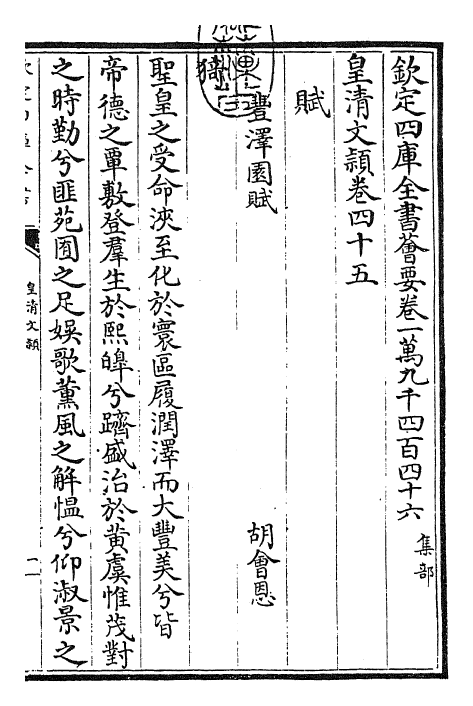 欽定四庫全書薈要卷一萬九千四百四十六 集部
皇清文穎卷四十五
賦
豐澤園賦 胡會恩
猗
聖皇之受命浹至化於寰區履潤澤而大豐美兮皆
帝德之覃敷登羣生於熙皞兮躋盛治於黃虞惟茂對
之時勤兮匪苑囿之足娛歌薰風之解慍兮仰淑景之
皇清文穎
一